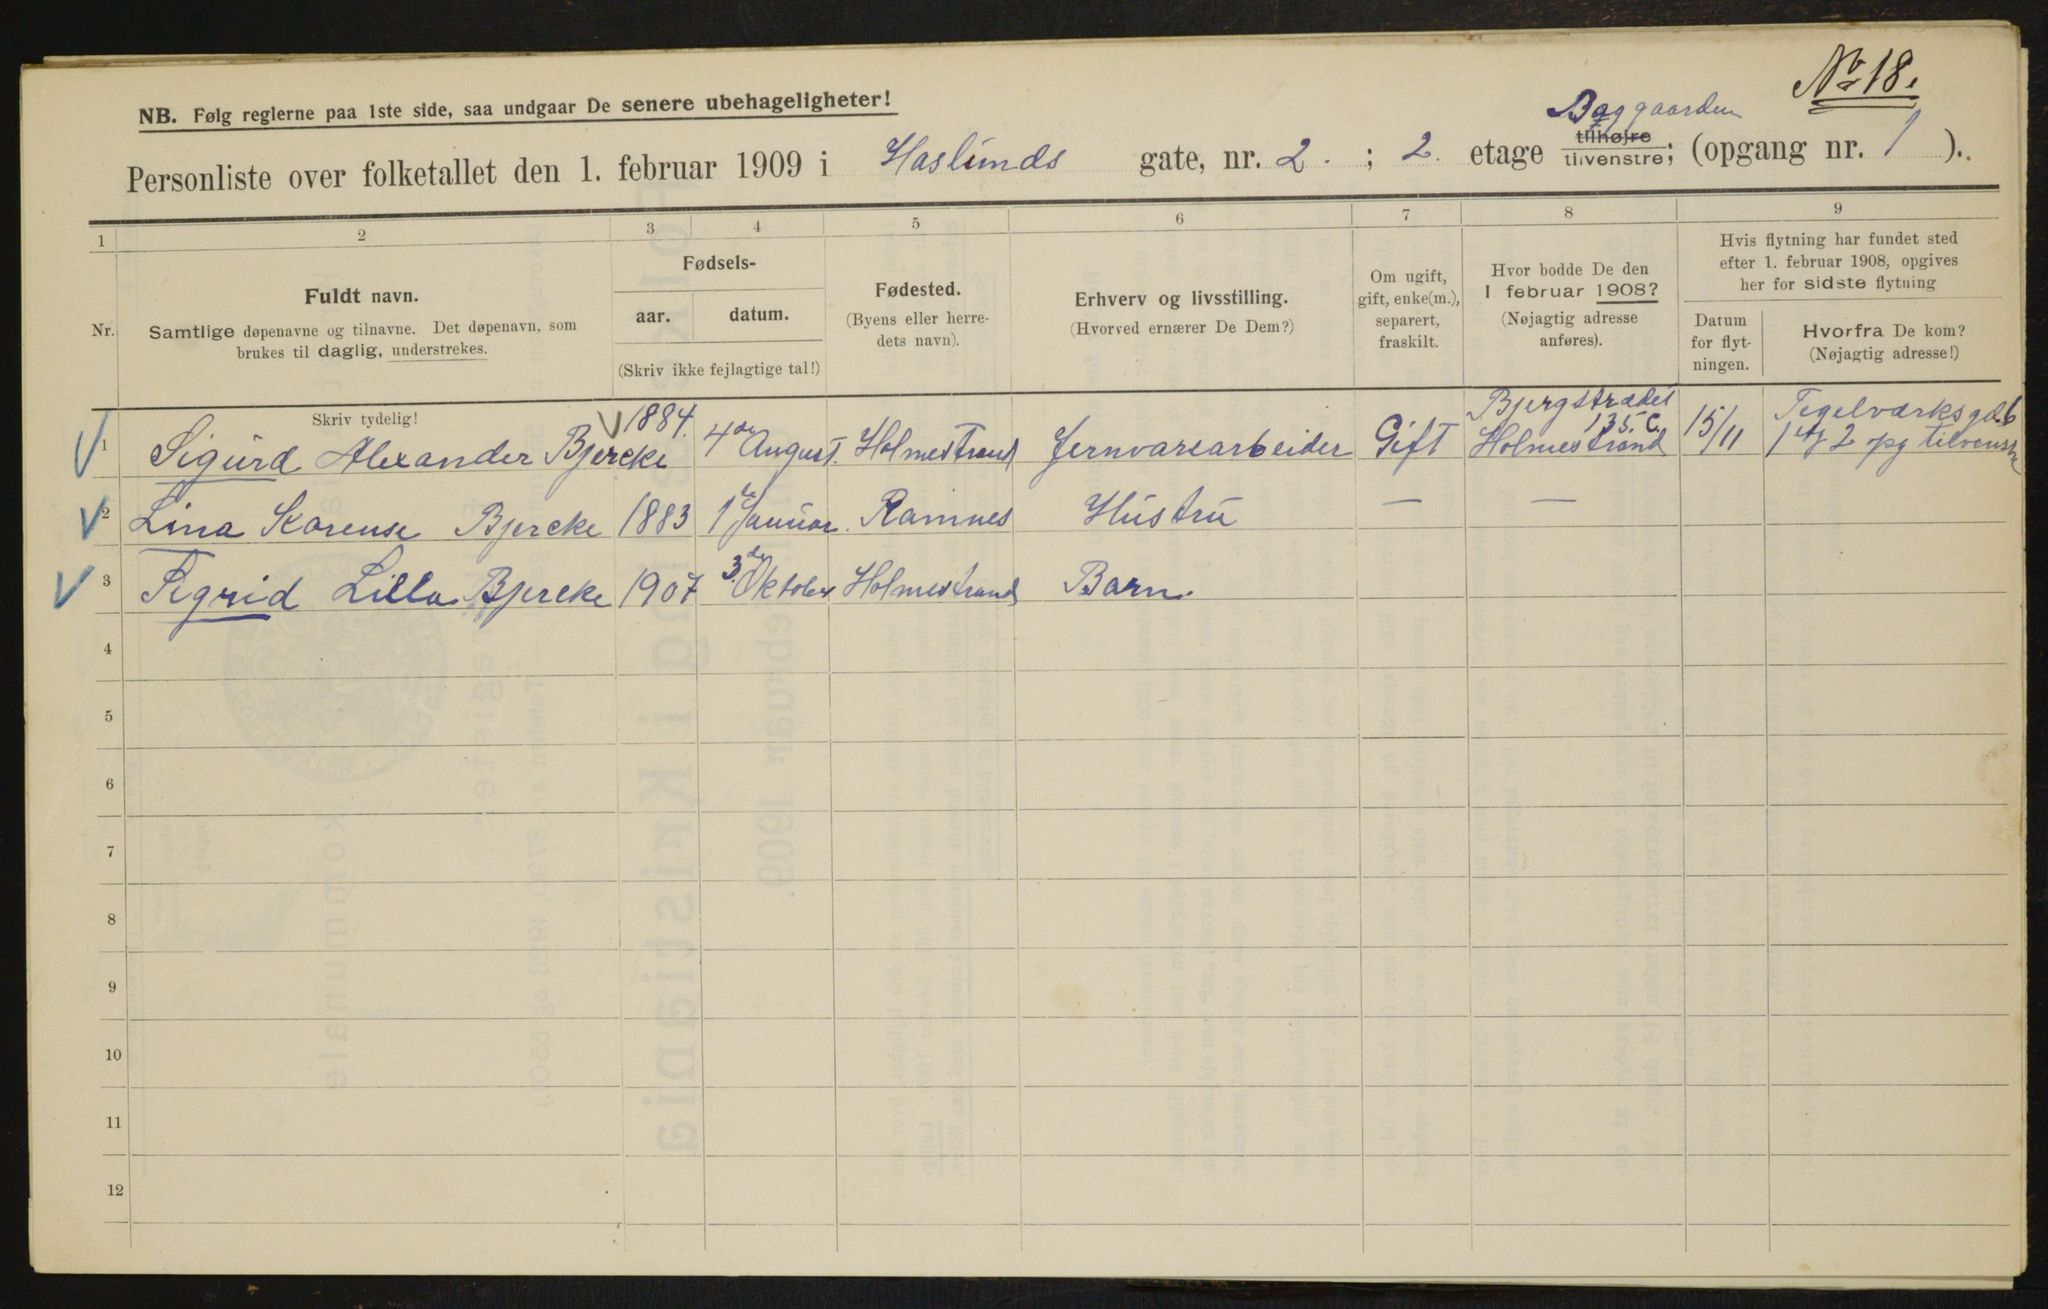 No 18.
NB. Følg reglerne paa 1ste side, saa undgaar De senere ubehageligheter!
Baggaarden
Personliste over folketallet den 1. februar 1909 i Haslunds gate, nr. 2. ; 2. etage tilhøjre tilvenstre; (opgang nr. 1 ).
1 2 3 4 5 6 7 8 9
Nr.
Fuldt navn.
Samtlige døpenavne og tilnavne. Det døpenavn, som
brukes til daglig, understrekes.
Skriv tydelig!
Fødsels-
aar. datum.
(Skriv ikke fejlagtige tal!)
Fødested.
(Byens eller herre-
dets navn).
Erhverv og livsstilling.
(Hvorved ernærer De Dem?)
Om ugift,
gift, enke(m.),
separert,
fraskilt.
Hvor bodde De den
1 februar 1908?
(Nøjagtig adresse
anføres).
Hvis flytning har fundet sted
efter 1. februar 1908, opgives
her for sidste flytning
Datum
for flyt-
ningen.
Hvorfra De kom?
(Nøjagtig adresse!)
1 Sigurd Alexander Bjercke 1884. 4de August. Holmestrand Jernvarearbeider Gift Bjergstrædet 135. C. Holmestrand 15/11 Tegelværksgd. 6
2 opg tilvenstre
2 Lina Karense Bjercke 1883 1 Januar. Ramnes Hustru — —
3 Sigrid Lilla Bjercke 1907 3de Oktober Holmestrand Barn.
4
5
6
7
8
9
10
11
12